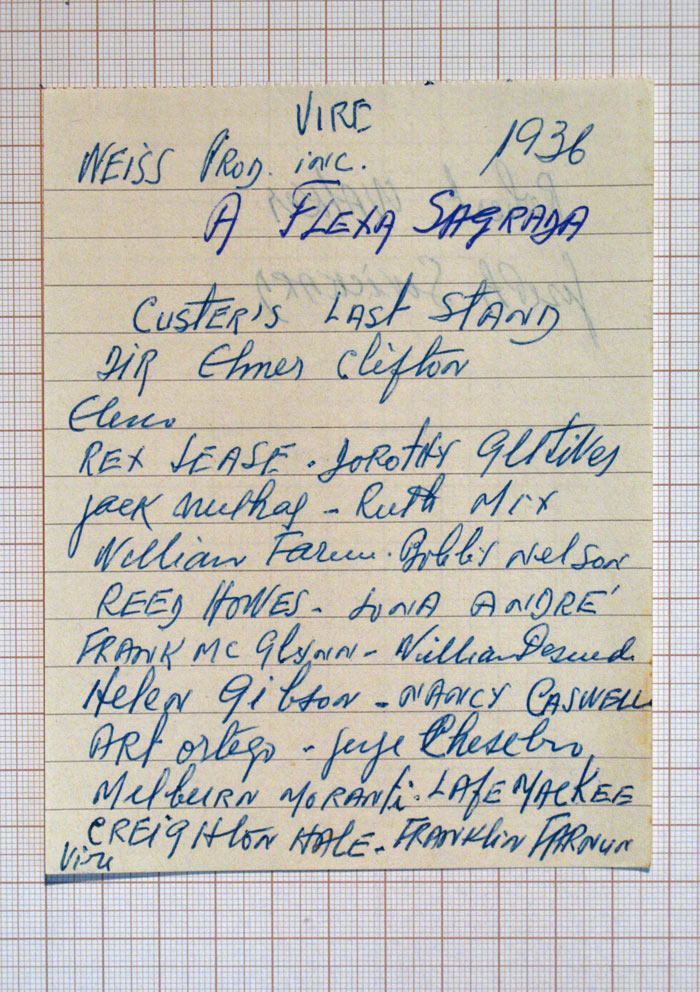 VIRE
WEISS PROD. INC. 1936
A FLEXA SAGRADA
CUSTER'S LAST STAND
DIR Elmer Clifton
Elenco
REX LEASE. DOROTHY
Jack - Ruth Mix
William Farnum. Bobby Nelson
REED HOWES - LONA ANDRÉ
FRANK MC GLYNN - William Desmond
Helen Gibson - NANCY CASWELL
ART ortego - Chesebro
Milburn MORANti. LAFE MACKEE
CREIGHtON HALE - FRANKLIN FARNUN
Vire